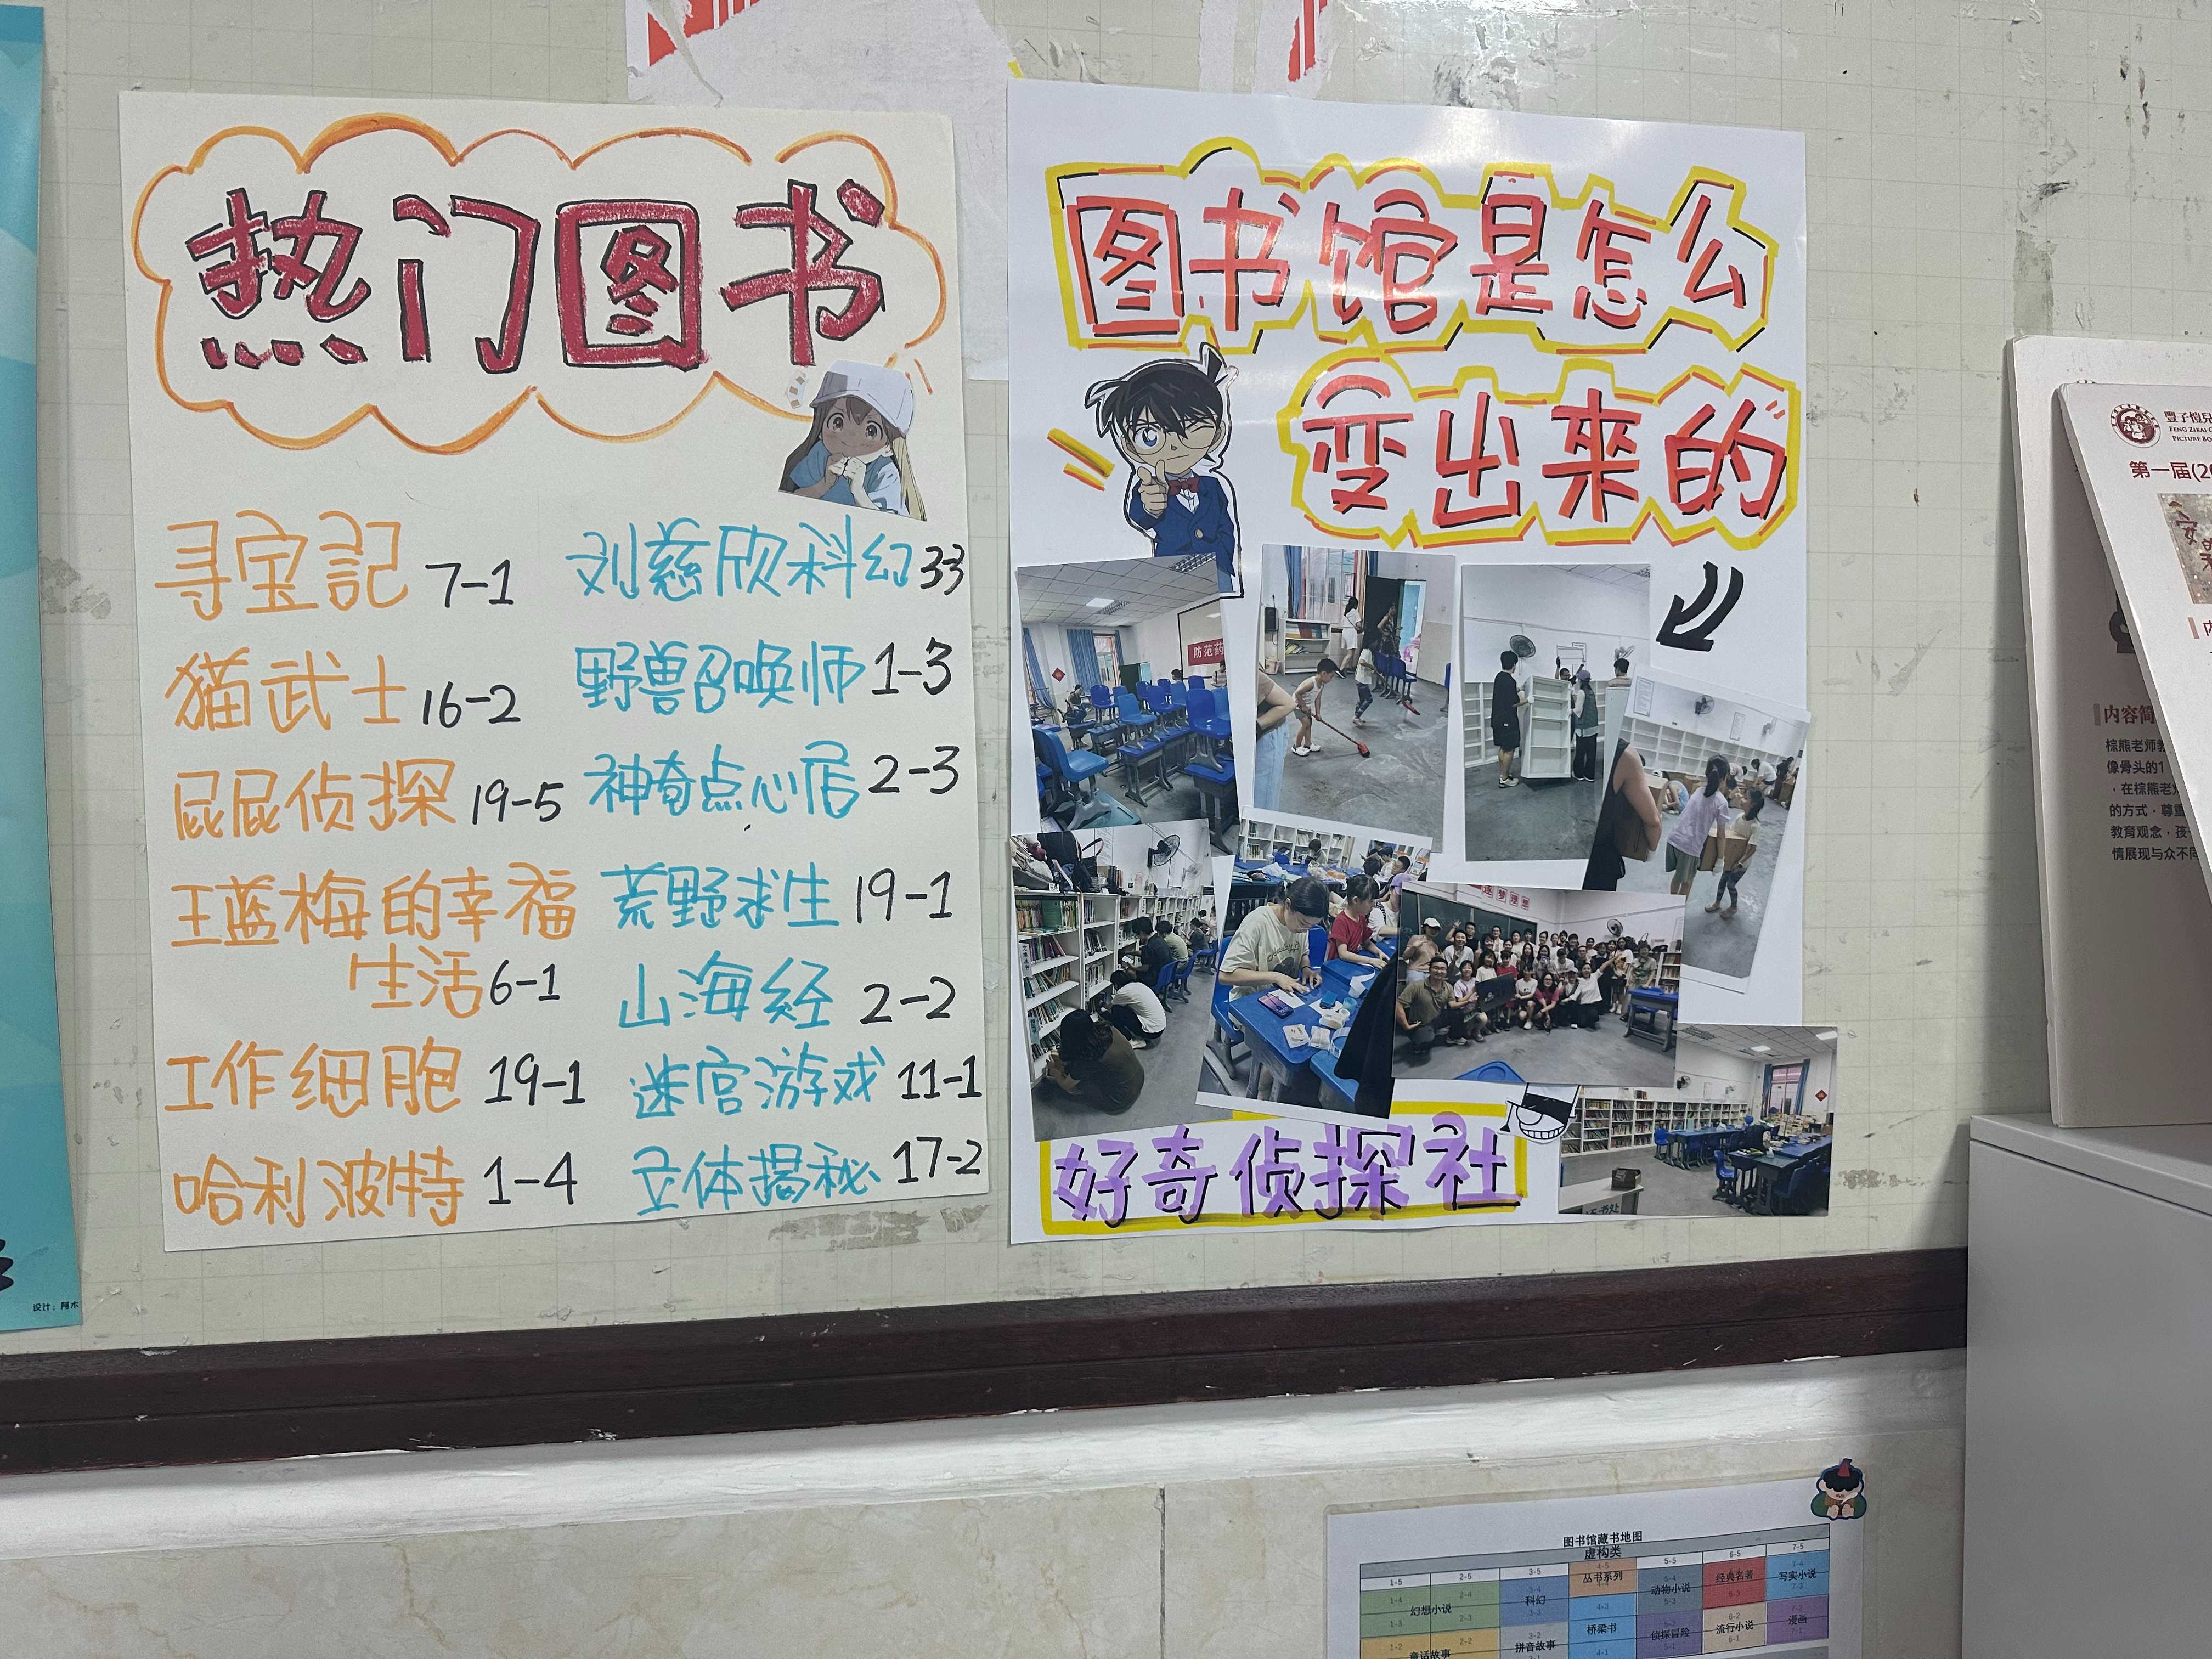 热门图书
寻宝記 7-1
猫武士 16-2
屁屁侦探 19-5
王蓝梅的幸福
生活 6-1
工作细胞 19-1
哈利波特 1-4
刘慈欣科幻 3-3
野兽召唤师 1-3
神奇点心店 2-3
荒野求生 19-1
山海经 2-2
迷宫游戏 11-1
立体揭秘 17-2
图书馆是怎么
变出來的
防范药
逐梦理想
好奇侦探社
设计：阿木
豐子愷兒
FENG ZIKAI C
PICTURE BO
第一届(20
内容简
棕熊老师教
像骨头的1
，在棕熊老
的方式，尊重
教育观念，孩
情展现与众不同
图书馆藏书地图
虚构类
1-5 2-5 3-5 4-5 5-5 6-5 7-5
1-4 2-4 3-4 丛书系列 5-4 经典名著 7-4
幻想小说 科幻 动物小说 写实小说
1-3 2-3 3-3 4-3 5-3 6-3 7-3
桥梁书 侦探冒险 流行小说 漫画
1-2 2-2 3-2 5-2 6-2
童话故事 拼音故事 4-1 5-1 6-1 7-1